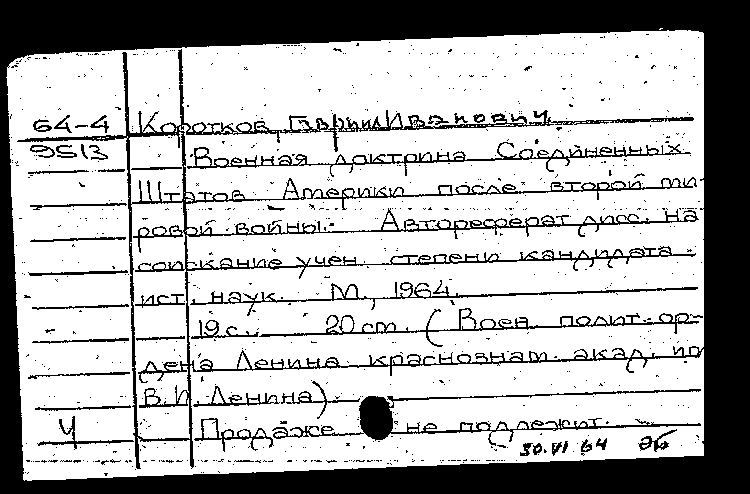 64-4 Коротков, Гавриил Иванович.
9513 Военная доктрина Соединенных
Штатов Америки после второй ми-
ровой войны. Автореферат дисс. на
соискание учен. степени кандидата
ист. наук. М., 1964.
19 с. 20 cm. (Воен. полит. ор-
дена Ленина краснознам. акад. им
В.И. Ленина).
Ч Продаже не подлежит.
30.VI 64